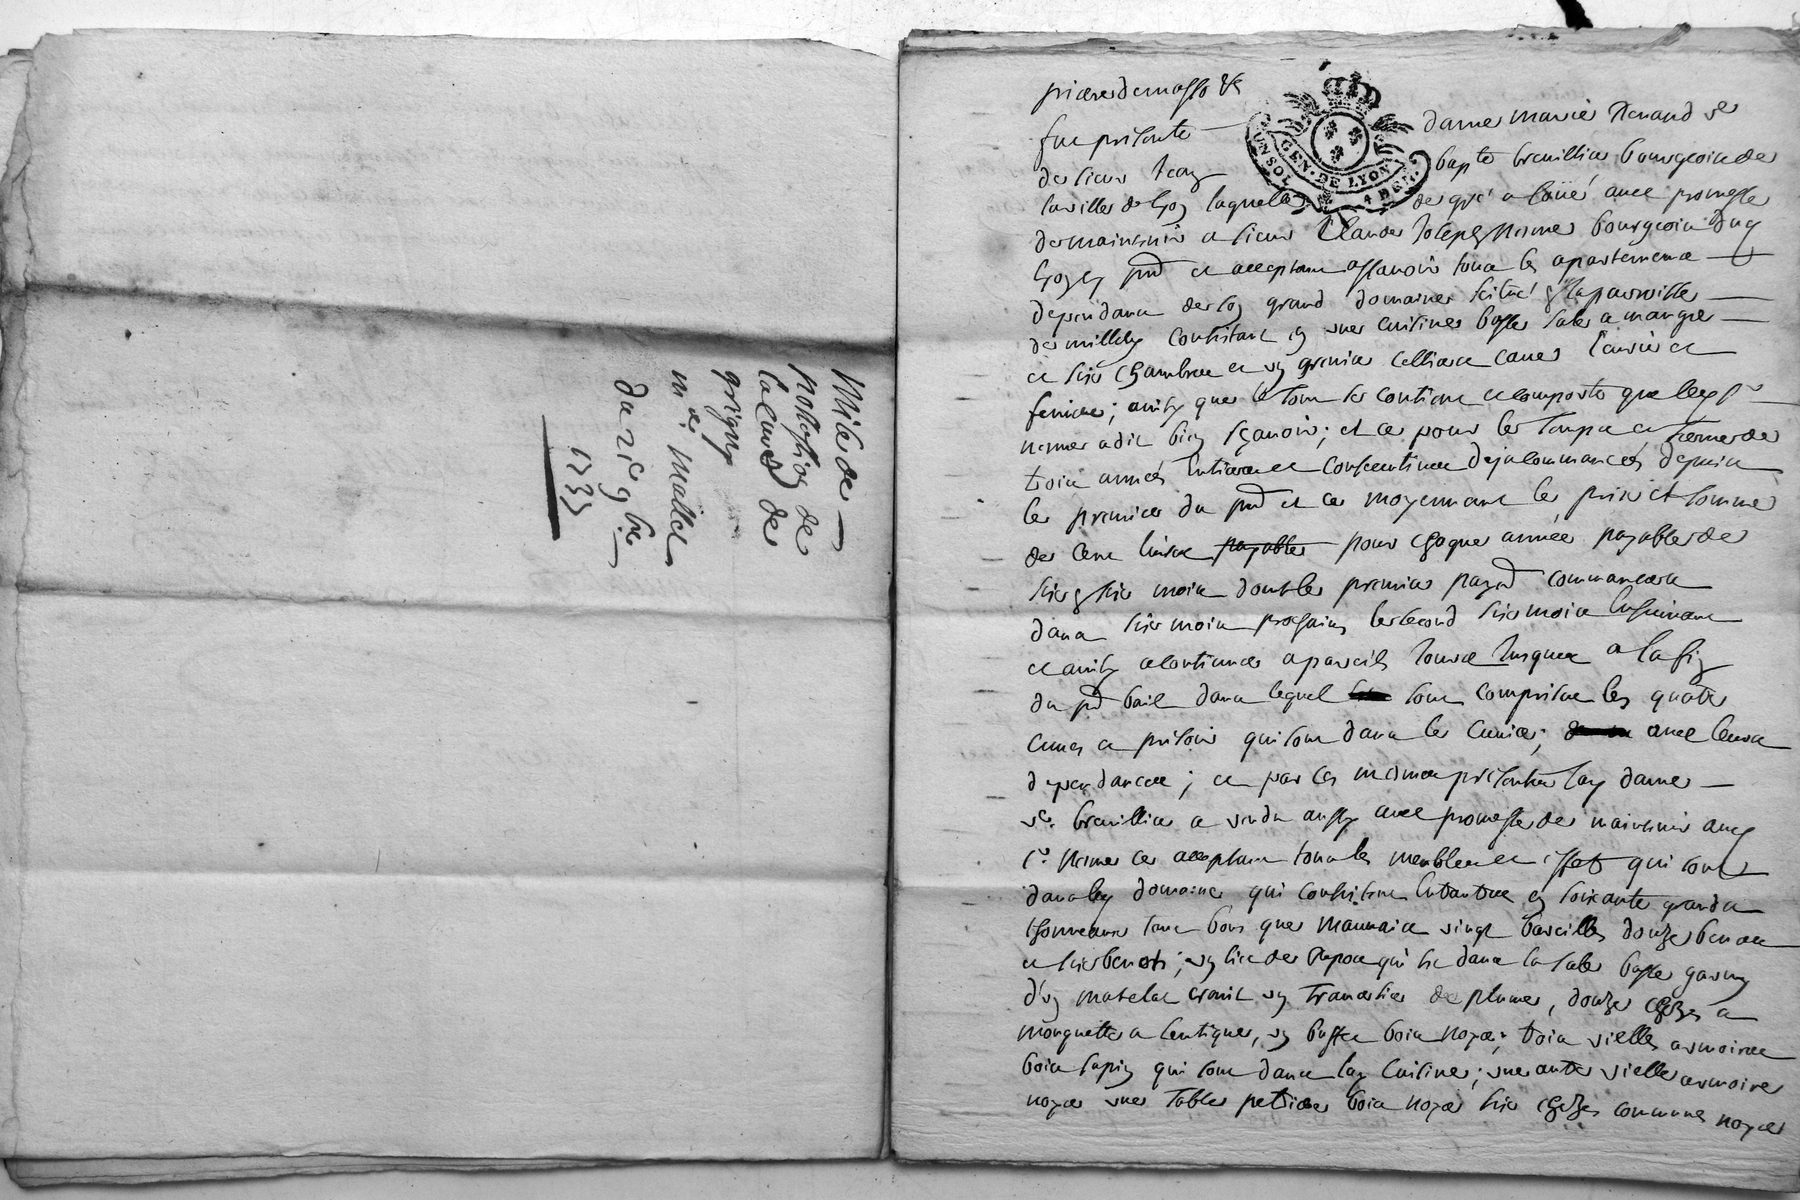 Mise de
possession de
la cure de
grigny
me. Mallet
du 21e 9bre
1733
GEN. DE LYON
UN SOL 4 DEN.
fut presente dame marie Renaud ve
de sieur Jean bapte breuillier bourgeois de
la ville de Lyon laquelle de gré a loué avec promesse
de maintenir a sieur Claude Joseph bourgeois dud
Lyon pnt et acceptant assavoir tous les apartements
dependants de son grand domaine scitué parroisse
de millery consistant en une cuisine basse sale a manger
et six chambres et un grenier cellier caves ecurie et
feniere; ainsy que le tout se contient et comporte que led sr
a dit bien sçavoir; et ce pour le temps et terme de
trois années entieres et consecutives deja commancées depuis
le premier du pnt et ce moyennant le prix et somme
de cent livres payables pour chaque année payable de
six en six mois dont le premier payent commancera
dans six mois prochains le second six mois ensuivant
et ainsy a continuer a pareils jours jusques a la fin
du pnt bail dans lequel sont comprises les quatre
cuves et presoir qui sont dans le cuvier; avec leurs
dependances; et par ces mesmes presentes lad dame
ve. breuillier a vendu aussy avec promesse de maintenir aud
sr. ce acceptant tous les meubles et effets qui sont
dans led domaine qui consistent en soixante grands
thonneaux tant bons que mauvais vingt bareilles douze bennes
et six bennots; un lit de repos qui est dans la sale basse garny
d'un matelas un traversier de plume, douze chezes a
mouquette a lentique, un buffet bois noyer; trois vielles armoires
bois sapin qui sont dans lad cuisine; une autre vielle armoire
noyer une table petriere bois noyer six chezes commune noyer